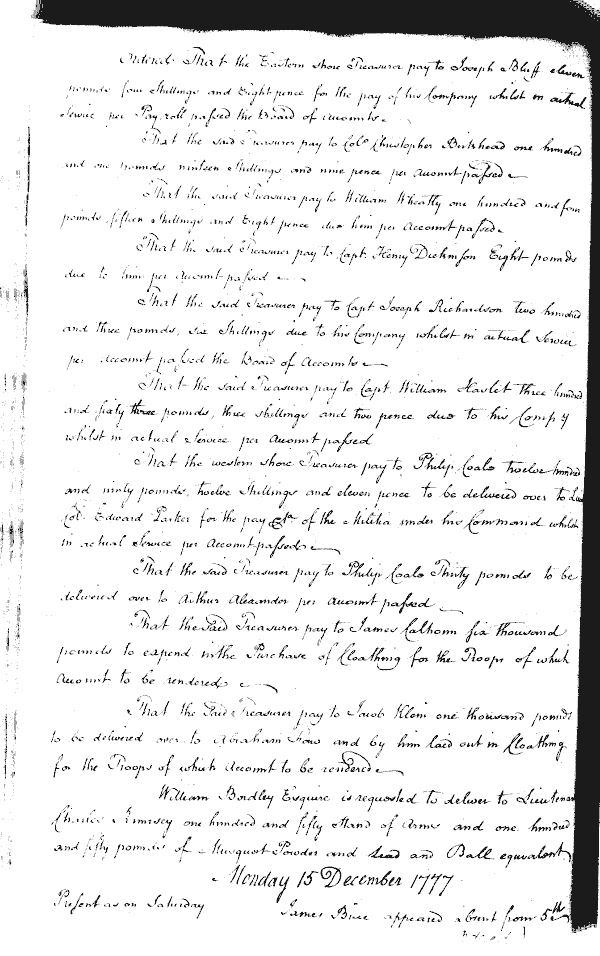 Ordered That the Eastern shore Treasurer pay to Joseph Bluff eleven
pounds four Shillings and Eight pence for the pay of his Company whilst in actual
Service per Pay roll passed the Board of Accounts
That the said Treasurer pay to Colo. Christopher Birkhead one hundred
and one pounds nineteen Shillings and nine pence per Account passed
That the said Treasurer pay to William Wheatly one hundred and four
pounds fifteen Shillings and Eight pence due him per Account passed
That the said Treasurer pay to Capt. Henry Dickinson Eight pounds
due to him per Account passed
That the said Treasurer pay to Capt Joseph Richardson two hundred
and three pounds, six Shillings due to his Company whilst in actual Service
per Account passed the Board of Accounts
That the said Treasurer pay to Capt. William Haslet three hundred
and sixty three pounds, three shillings and two pence due to his Compy
whilst in actual Service per Account passed
That the western shore Treasurer pay to Philip Coale twelve hundred
and ninty pounds, twelve Shillings and eleven pence to be delivered over to
Col. Edward Parker for the pay &ca of the Militia under his Command whilst
in actual Service per Account passed
That the said Treasurer pay to Philip Coale Thirty pounds to be
delivered over to Arthur Alexander per Account passed
That the said Treasurer pay to James Calhoun six thousand
pounds to expend in the Purchase of Cloathing for the Troops of which
Account to be rendered
That the said Treasurer pay to Jacob Klein one thousand pounds
to be delivered over to Abraham Faw and by him laid out in Cloathing
for the Troops of which Account to be rendered
William Bordley Esquire is requested to deliver to Lieutenant
Charles one hundred and fifty Stand of Arms and one hundred
and fifty pounds of Musquet Powder and Lead and Ball equivalent
Monday 15 December 1777
Present as on Saturday
James Brice appeared absent from 5th